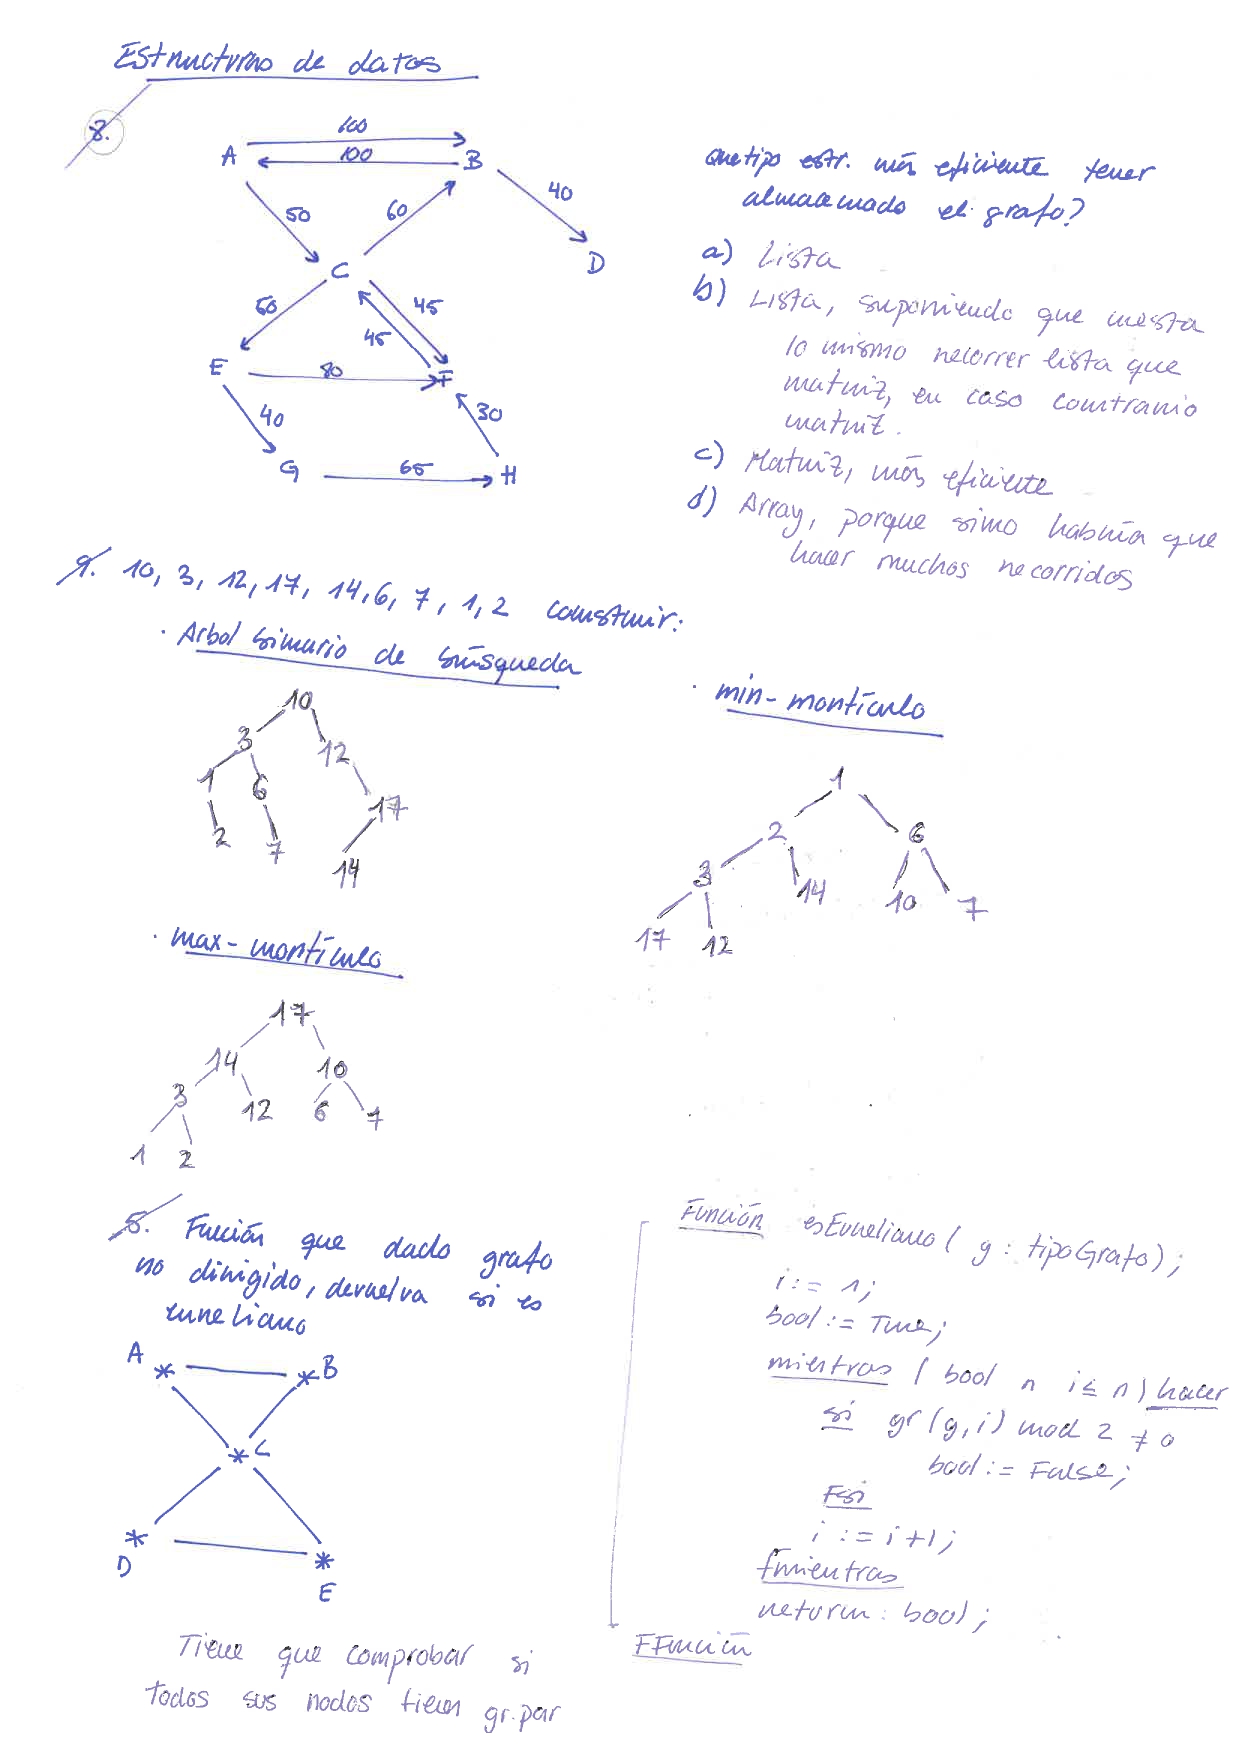 Estructuras de datos
8.
100
A
100
B
40
50
60
D
C
60
45
45
E
80
F
40
30
G
65
H
Que tipo estr. más eficiente tener
almacenado el grafo?
a) Lista
b) Lista, suponiendo que cuesta
lo mismo recorrer lista que
matriz, en caso contrario
matriz.
c) Matriz, más eficiente
d) Array, porque sino habría que
hacer muchos recorridos
9. 10, 3, 12, 17, 14, 6, 7, 1, 2 construir:
· Arbol binario de búsqueda
10
3
12
1
6
17
2
7
14
· min-montículo
1
2
6
3
14
10
7
17
12
· max-montículo
17
14
10
3
12
6
7
1
2
5. Función que dado grafo
no dirigido, devuelva si es
euneliano
A
B
C
D
E
Tiene que comprobar si
todos sus nodos tienen gr.par
Función esEuneliano ( g : tipoGrafo);
i := 1;
bool := True;
mientras ( bool ∩ i ≤ n ) hacer
si gr (g, i) mod 2 ≠ 0
bool := False;
Fsi
i := i+1;
fmientras
return : bool;
FFunción